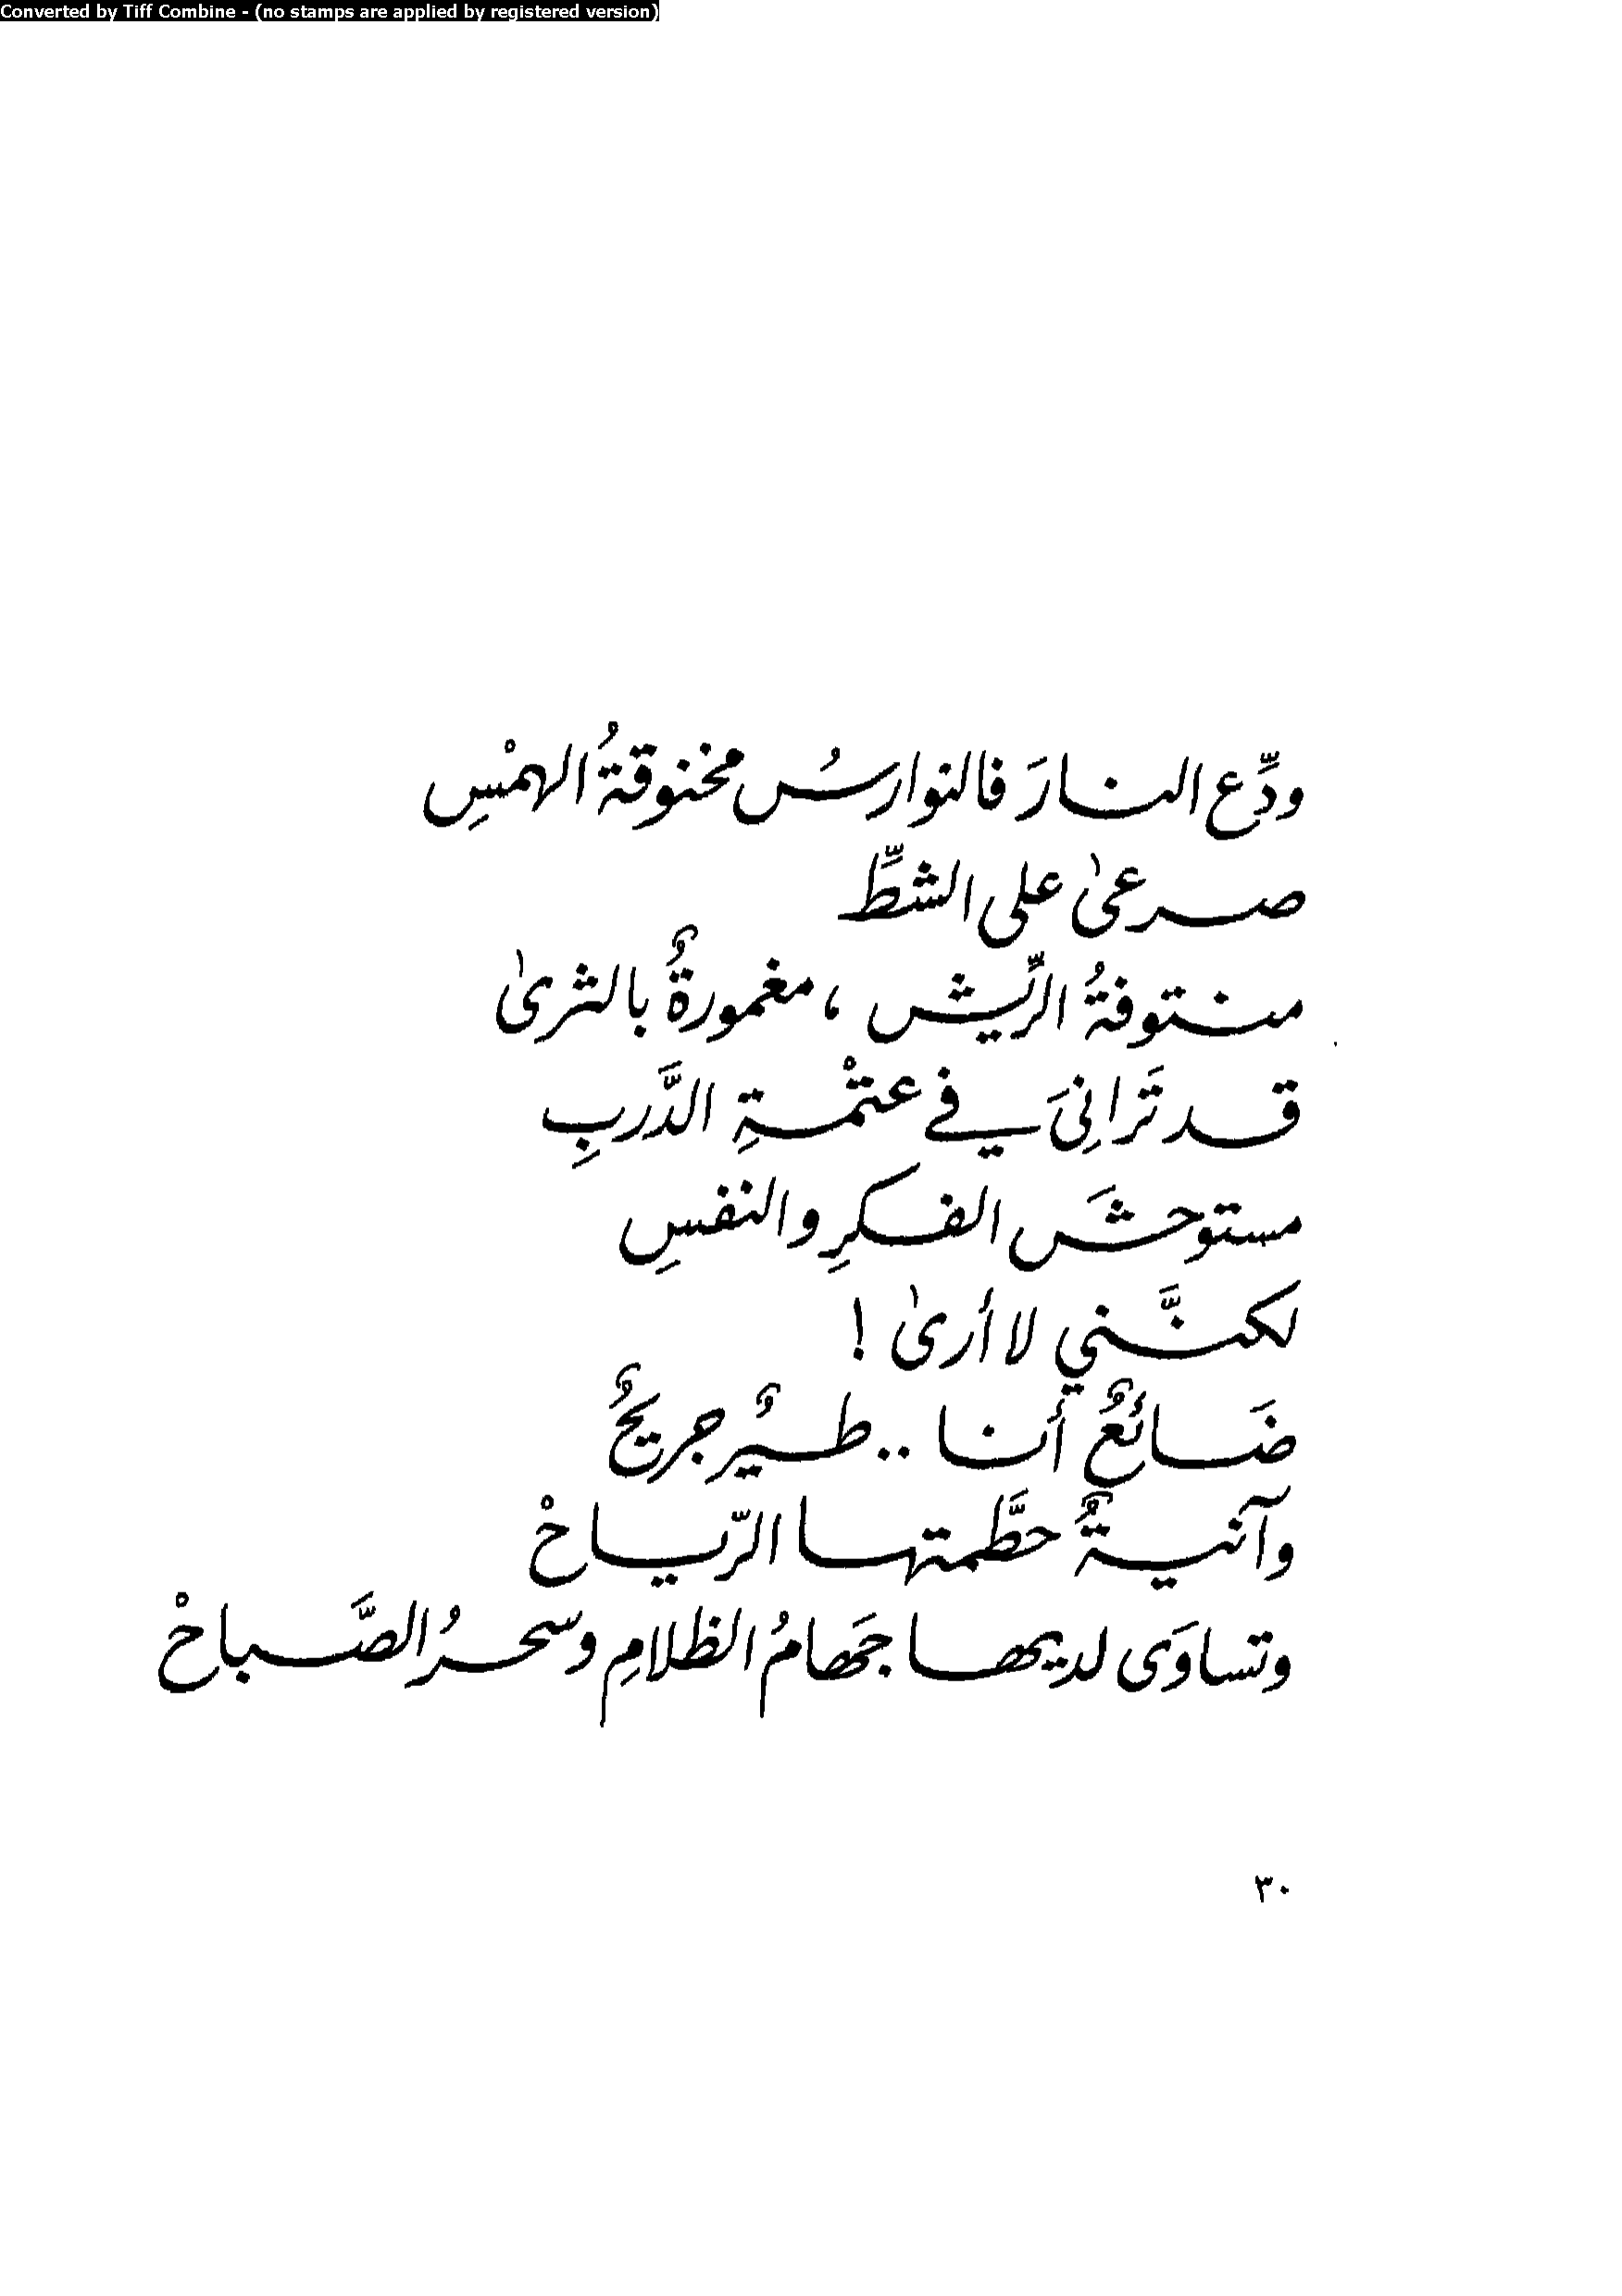 Converted by Tiff Combine - (no stamps are applied by registered version)
ودِّع النارَ فالنوارسُ مخنوقةُ الهمْسِ
صرعىٰ على الشطِّ
منتوفةُ الرِّيش ، مغمورةٌ بالثرىٰ
قد تَرانِيَ في عتمْةِ الدَّربِ
مستوحشَ الفكرِ والنفسِ
لكنَّني لا أرىٰ !
ضَائعٌ أنا .. طيرٌ جريحٌ
وآنيةٌ حطَّمتها الرّياحْ
وتساوَى لديها جَهامُ الظلامِ وسحرُ الصَّباحْ
٣٠